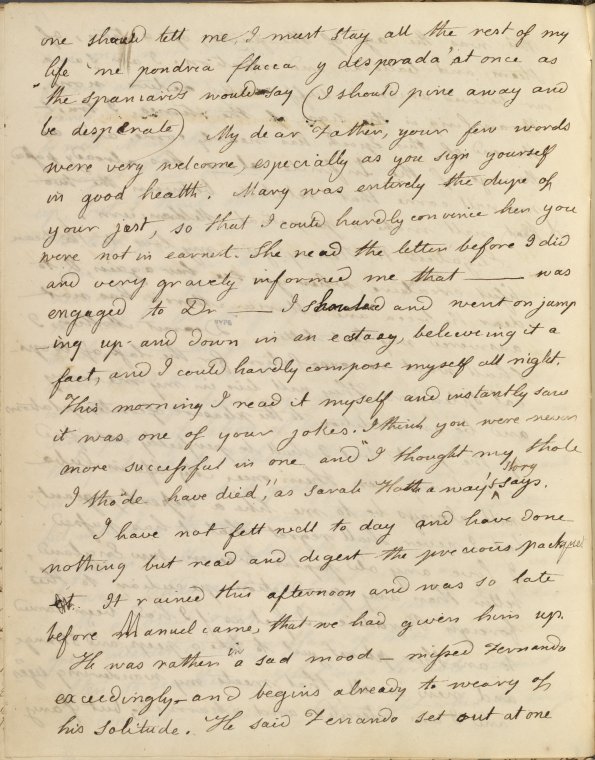 one should tell me, I must stay all the rest of my
life "me pondria flacca y desporada" at once as
the spaniards would say (I should pine away and
be desperate) My dear Father, your few words
were very welcome, especially as you sign yourself
in good health. Mary was entirely the dupe of
your jest, so that I could hardly convince her you
were not in earnest. She read the letter before I did
and very gravely informed me that —— was
engaged to Dr —— I shouted and went on jump
-ing up and down in an ecstasy, believeing it a
fact, and I could hardly compose myself all night.
This morning I read it myself and instantly saw
it was one of your jokes. I think you were never
more successful in one and "I thought my thole
I tho'de have died," as Sarah Hathaway's story says.
I have not felt well to day and have done
nothing but read and digest the precious pacquet
It rained this afternoon and was so late
before Manuel came, that we had given him up.
He was rather in a sad mood — missed Fernando
exceedingly and begins already to weary of
his solitude. He said Fernando set out at one